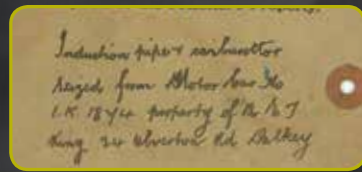 Induction pipe & carburettor
seized from Motor Car No
I.K 1844 property of
King 24 Ulverton Rd Dalkey